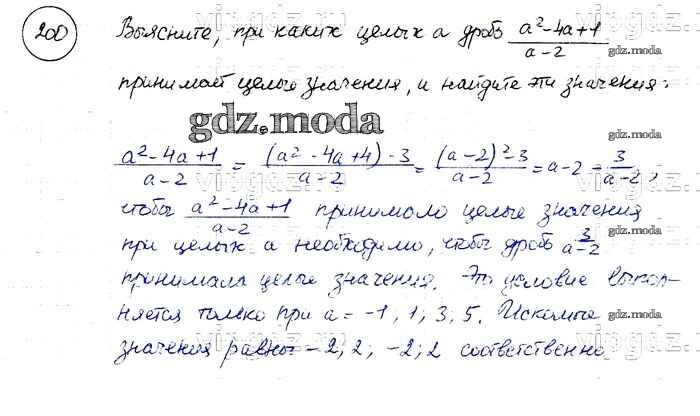 200 Выясните, при каких целых а дробь a²-4a+1/a-2
принимает целые значения, и найдите эти значения:
gdz.moda
a²-4a+1/a-2 = (a²-4a+4)-3/a-2 = (a-2)²-3/a-2 = a-2-3/a-2,
чтобы a²-4a+1/a-2 принимало целые значения
при целых а необходимо, чтобы дробь 3/a-2
принимала целые значения. Это условие выпол-
няется только при а = -1, 1, 3, 5. Искомые
значения равны -2; 2; -2; 2 соответственно